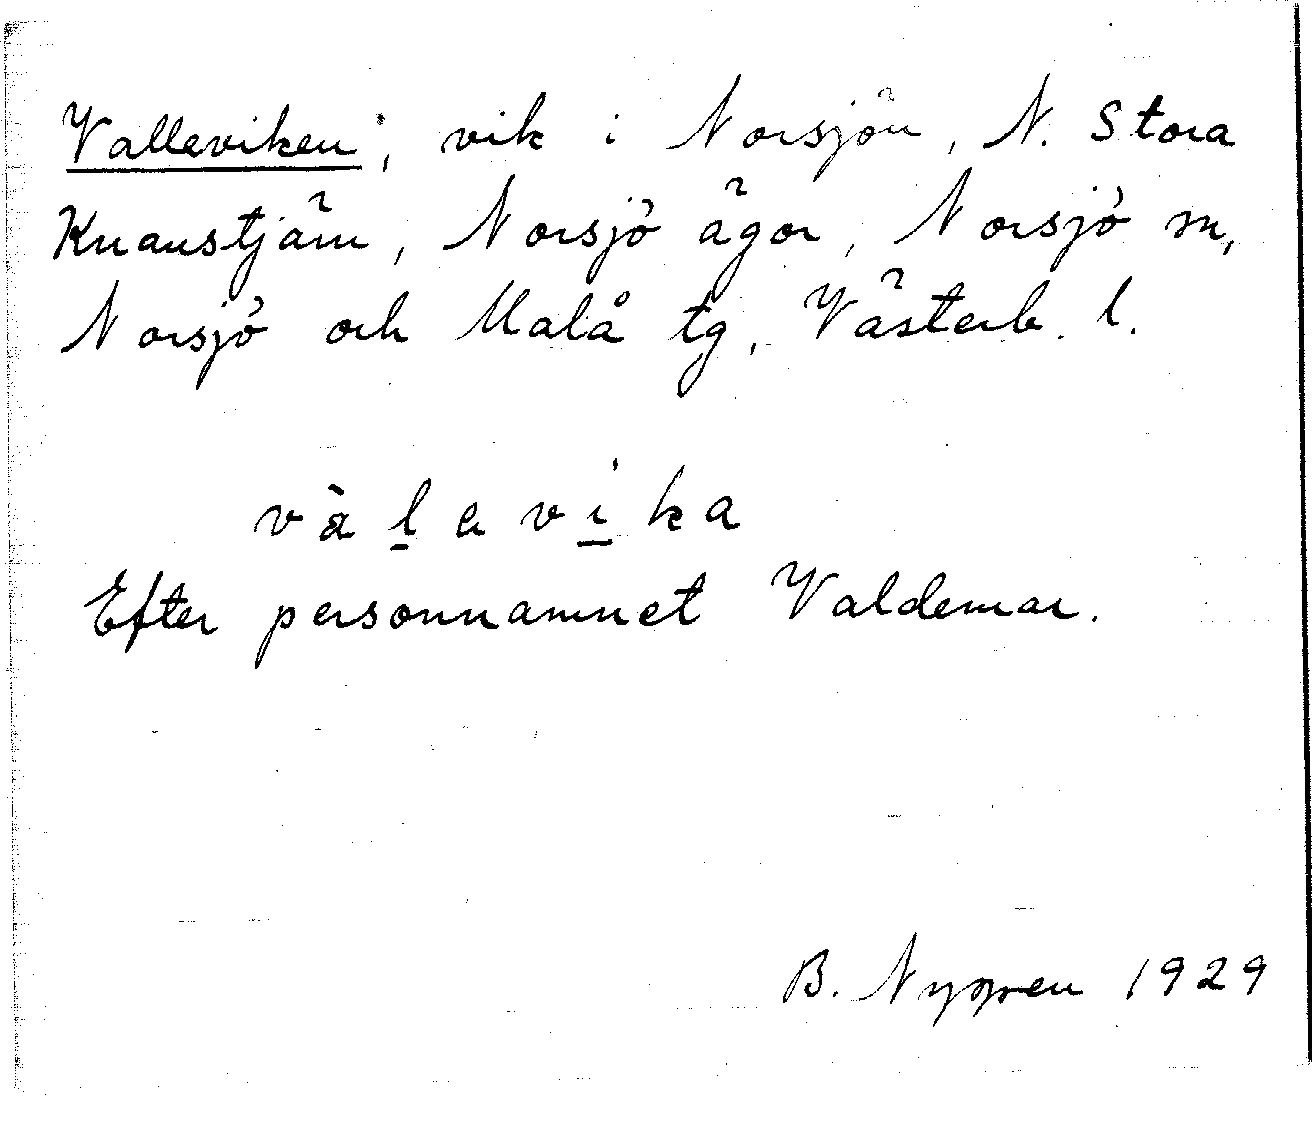 Valleviken, vik i Norsjön, N. Stora
Knaustjärn, Norsjö ägor, Norsjö sn,
Norsjö och Malå tg, Västerb. l.
vàlavika
Efter personnamnet Valdemar.
B. Nygren 1929